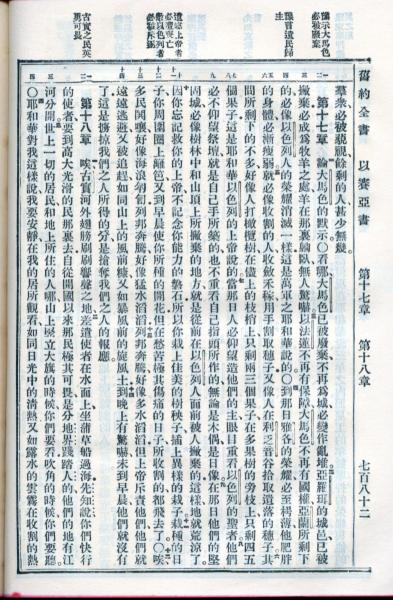 舊約全書　以賽亞書　第十七章　第十八章　七百八十二
豫示大馬色
必被廢棄
豫言遺民歸
主
違逆上帝者
必遭喪亡
敵以色列者
必被斥逐
古實之民英
勇可畏
羣衆必被藐視餘剩的人甚少無幾。
第十七章　論大馬色的默示。○看哪大馬色已被廢棄不再爲城必變作亂堆。亞羅珥的城邑已被
撇棄必成爲牧羊之處羊在那裏躺臥無人驚嚇。以法蓮不再有保障大馬色不再有國權亞蘭所剩下
的必像以色列人的榮耀消滅一樣這是萬軍之耶和華說的。○到那日雅各的榮耀必至枵薄他肥胖
的身體必漸瘦弱。就必像收割的人收斂禾稼用手割取穗子又像人在利乏音谷拾取遺落的穗子。其
間所剩下的不多好像人打橄欖樹在儘上的枝梢上只剩兩三個果子在多果樹的旁枝上只剩四五
個果子這是耶和華以色列的上帝說的。當那日人必仰望造他們的主眼目重看以色列的聖者他們
必不仰望祭壇就是自己手所築的也不重看自己指頭所作的無論是木偶是日像。在那日他們的堅
固城必像樹林中和山頂上所撇棄的地方就是從前在以色列人面前被人撇棄的這樣地就荒涼了。
因你忘記救你的上帝不記念你能力的磐石所以你栽上佳美的樹秧子插上異樣的栽子栽種的日
子你周圍圈上籬笆又到早晨使你所種的開花但在愁苦極其傷痛的日子所收割的都飛去了。○唉
多民鬨嚷好像海浪匉訇列邦奔騰好像猛水滔滔。列邦奔騰好像多水滔滔但上帝斥責他們他們就
遠遠逃避又被追趕如同山上的風前糠又如暴風前的旋風土。到晚上有驚嚇未到早晨他們就沒有
了這是擄掠我們之人所得的分是搶奪我們之人的報應
第十八章　唉古實河外翅膀刷刷響聲之地。差遣使者在水面上坐蒲草船過海先知說你們快行
的使者要到高大光滑的民那裏去自從開國以來那民極其可畏是分地界踐踏人的他們的地有江
河分開。世上一切的居民和地上所住的人哪山上豎立大旗的時候你們要看吹角的時候你們要聽。
○耶和華對我這樣說我要安靜在我的居所觀看如同日光中的清熱又如露水的雲霧在收割的熱